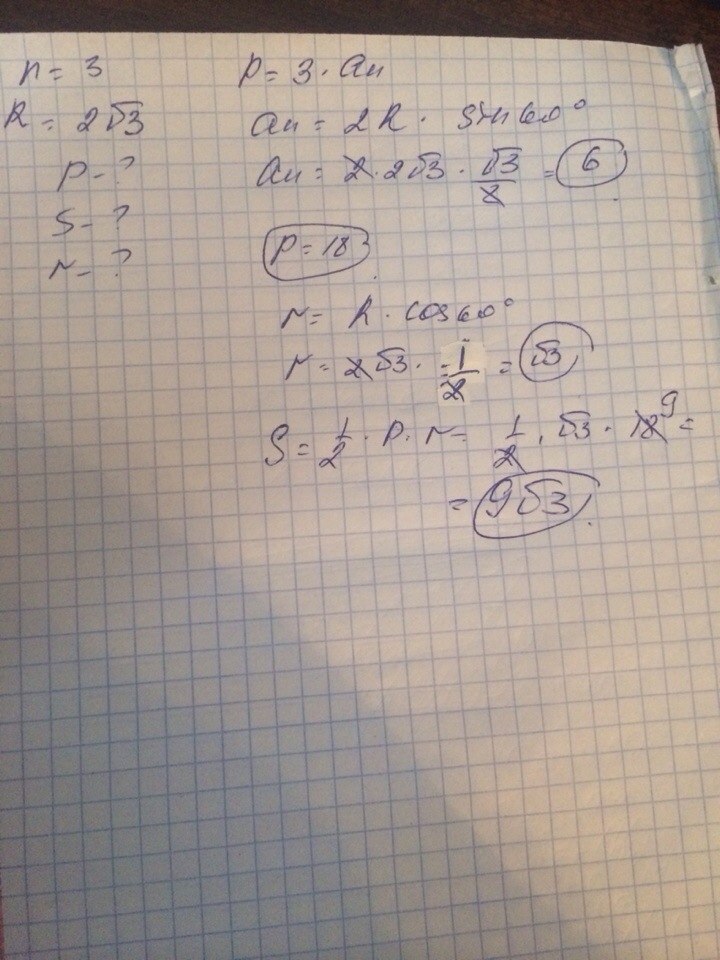 n = 3
R = 2√3
P - ?
S - ?
r - ?
P = 3 · an
an = 2R · sin 60°
an = 2 · 2√3 · √3/2 = 6
P = 18
r = R · cos 60°
r = 2√3 · 1/2 = √3
S = 1/2 · P · r = 1/2 · √3 · 18 9 =
= 9√3